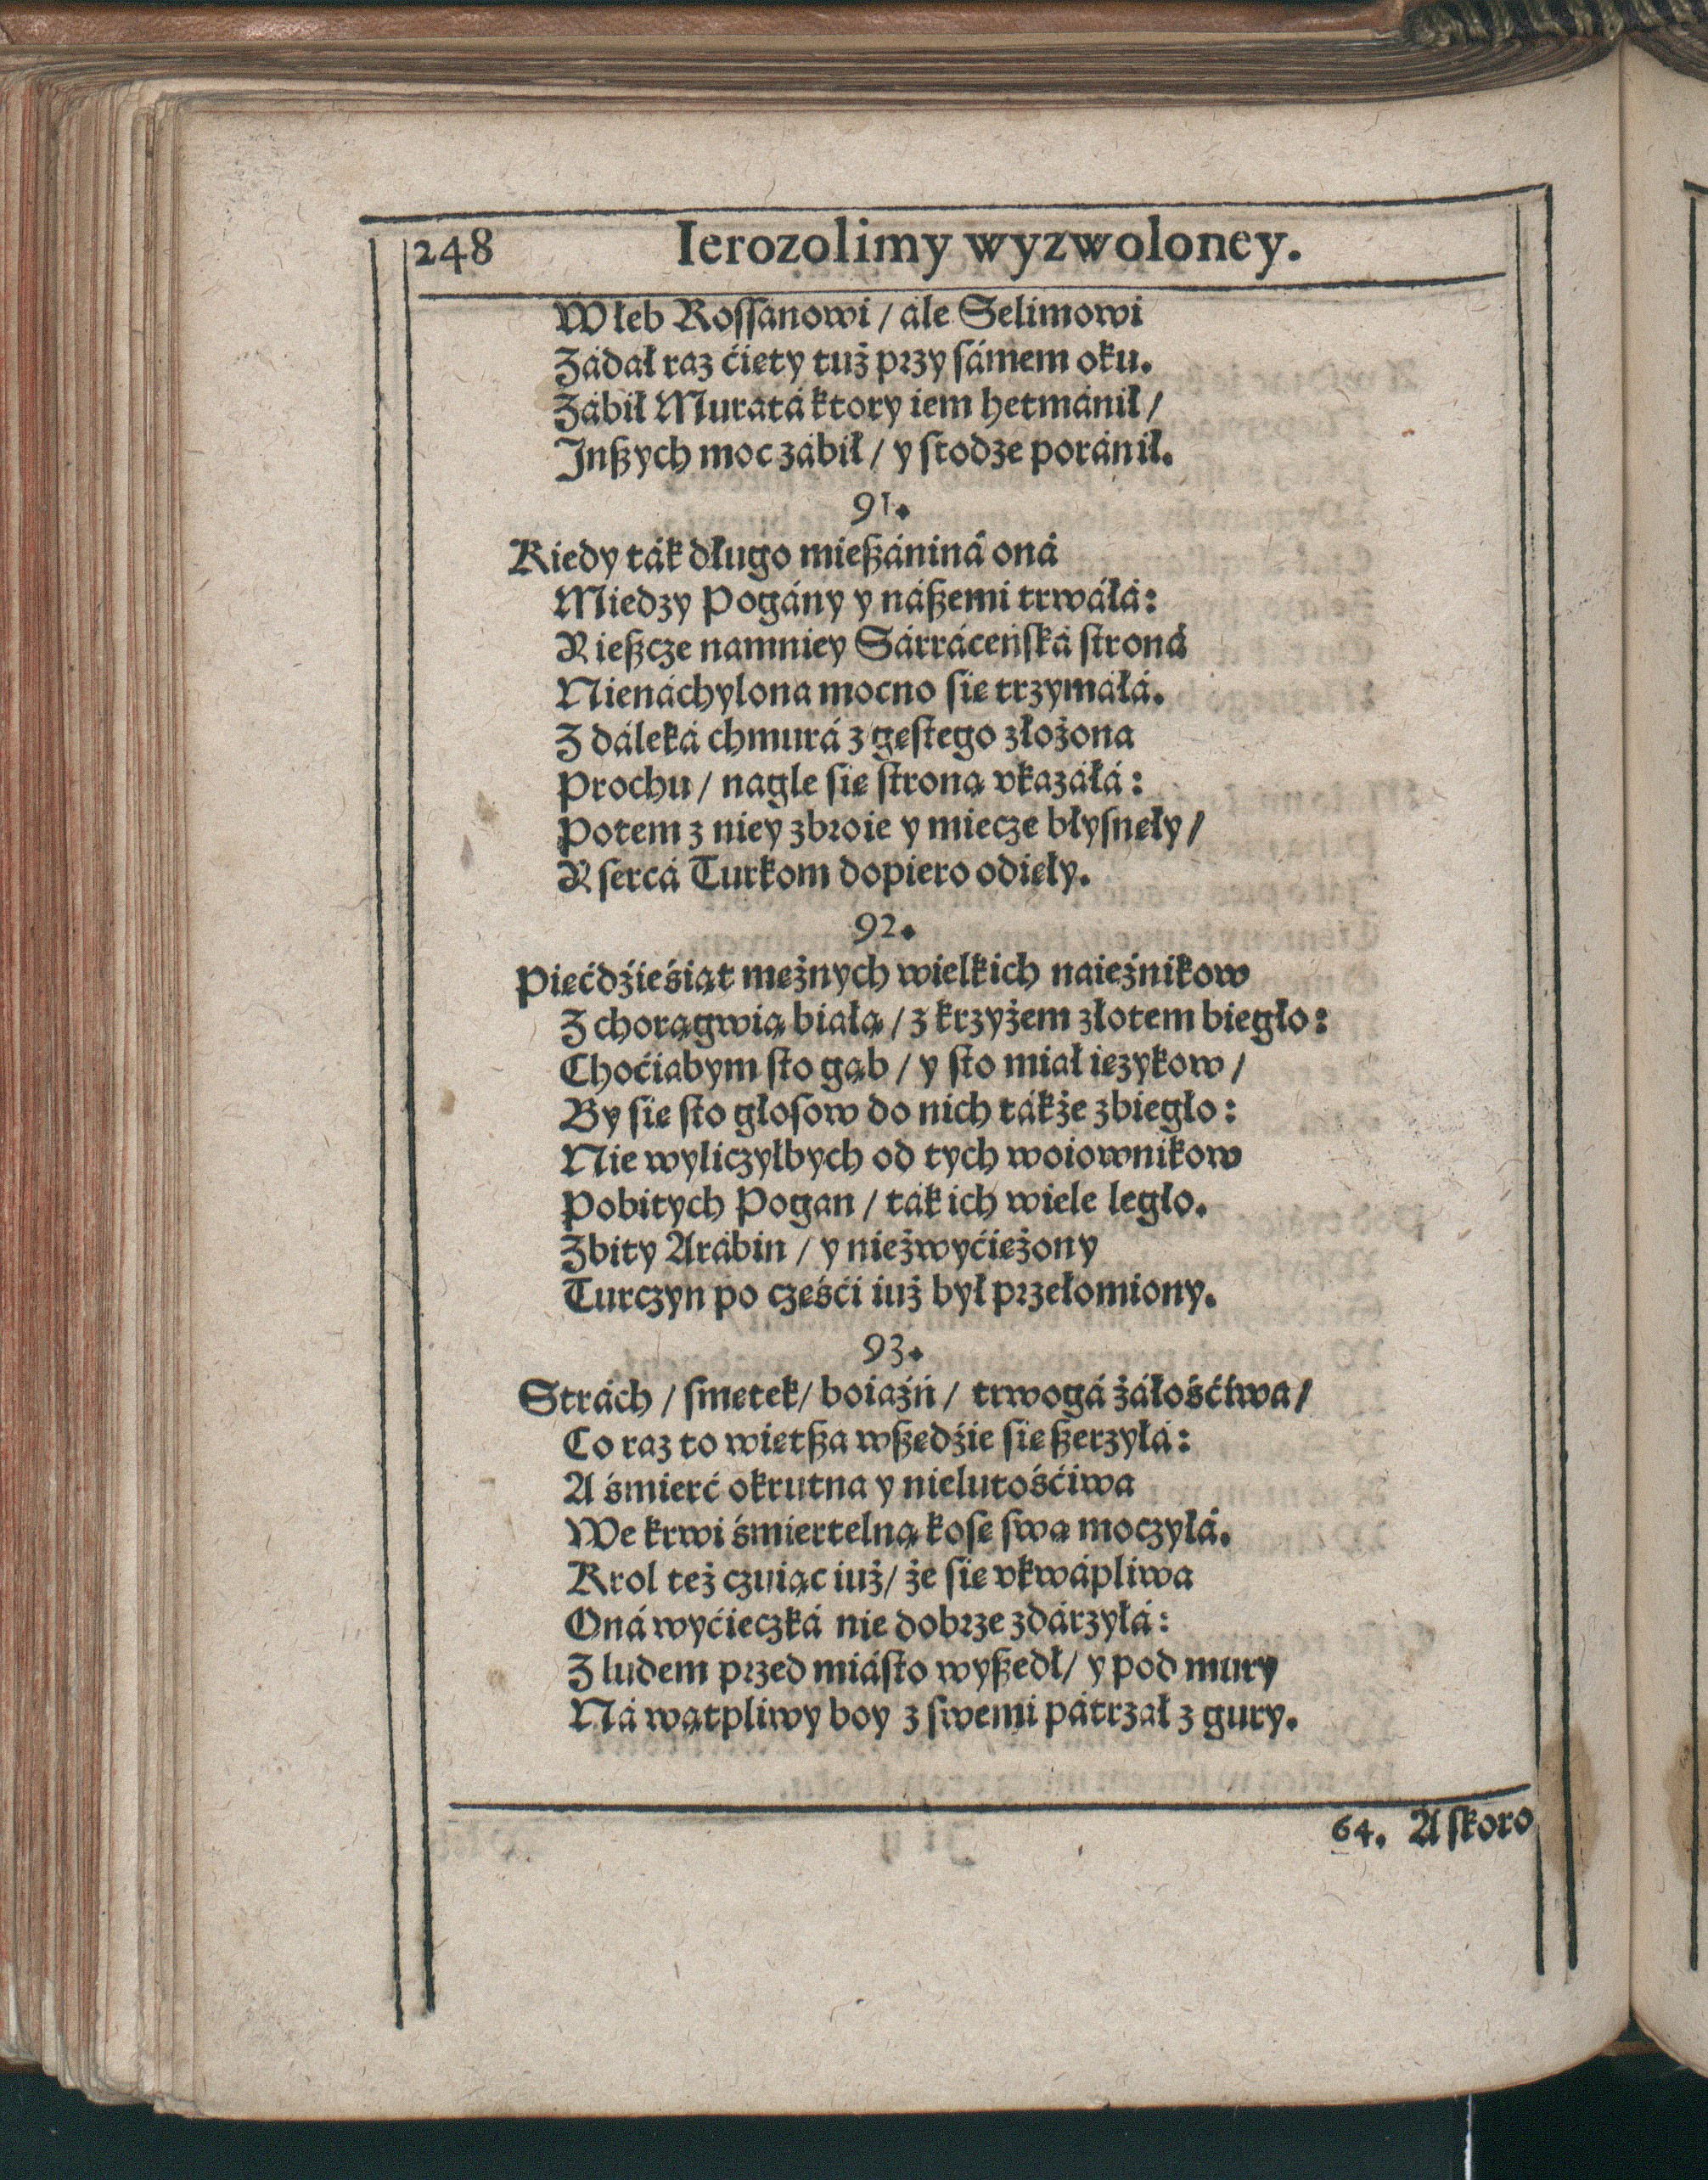 248 Ierozolimy wyzwoloney.
W łeb Rossanowi / ále Selimowi
Zádał raz ćięty tuż przy sámem oku.
Zábił Muratá ktory iem hetmánił /
Inszych moc zábił / y srodze poránił.
91.
Kiedy ták długo mieszániná oná
Miedzy Pogány y nászemi trwáłá:
Y ieszcze namniey Sárráceńská stroná
Nienáchylona mocno się trzymáłá.
Z dáleká chmurá z gęstego złożona
Prochu / nagle się stroną vkazáłá:
Potem z niey zbroie y miecze błysnęły /
Y sercá Turkom dopiero odięły.
92.
Pięćdźieśiąt mężnych wielkich naieźnikow
Z chorągwią białą / z krzyżem złotem biegło:
Choćiabym sto gąb / y sto miał ięzykow /
By się sto głosow do nich tákże zbiegło:
Nie wyliczyłbych od tych woiownikow
Pobitych Pogan / ták ich wiele legło.
Zbity Arábin / y niezwyćiężony
Turczyn po częśći iuż był przełomiony.
93.
Strách / smętek / boiaźń / trwogá żáłośćiwa /
Co raz to więtsza wszędźie się szerzyłá:
A śmierć okrutna y nielutośćiwa
We krwi śmiertelną kosę swą moczyłá.
Krol też czuiąc iuż / że się vkwápliwa
Oná wyćieczká nie dobrze zdárzyłá:
Z ludem przed miásto wyszedł / y pod mury
Ná wątpliwy boy z swemi pátrzał z gury.
64. A skoro